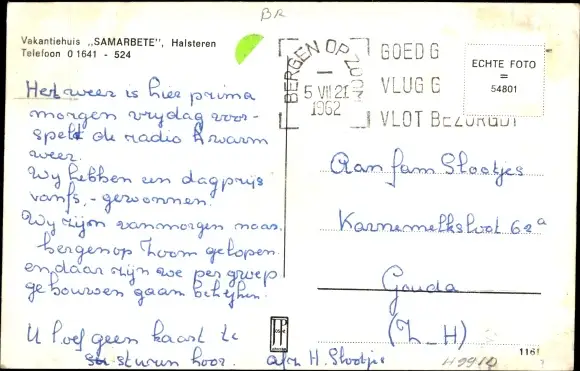 BR
Vakantiehuis „SAMARBETE", Halsteren
Telefoon 0 1641 - 524
Het weer is hier prima
morgen vrydag voor-
spelt de radio k warm
weer.
Wy hebben een dagprijs
van fs,- gewonnen.
Wy zijn vanmorgen naar
bergen op Zoom gelopen
en daar zijn we per groep
gebouwen gaan bekijken.
U hoef geen kaart te
sturen hoor.
BERGEN OP ZOOM
5 VII 21
1962
GOED G
VLUG G
VLOT BEZORGD!
ECHTE FOTO
=
54801
Aan fam Slootjes
Karnemelksloot 62a
Gouda
(Z_H)
afz H. Slootjes
1161